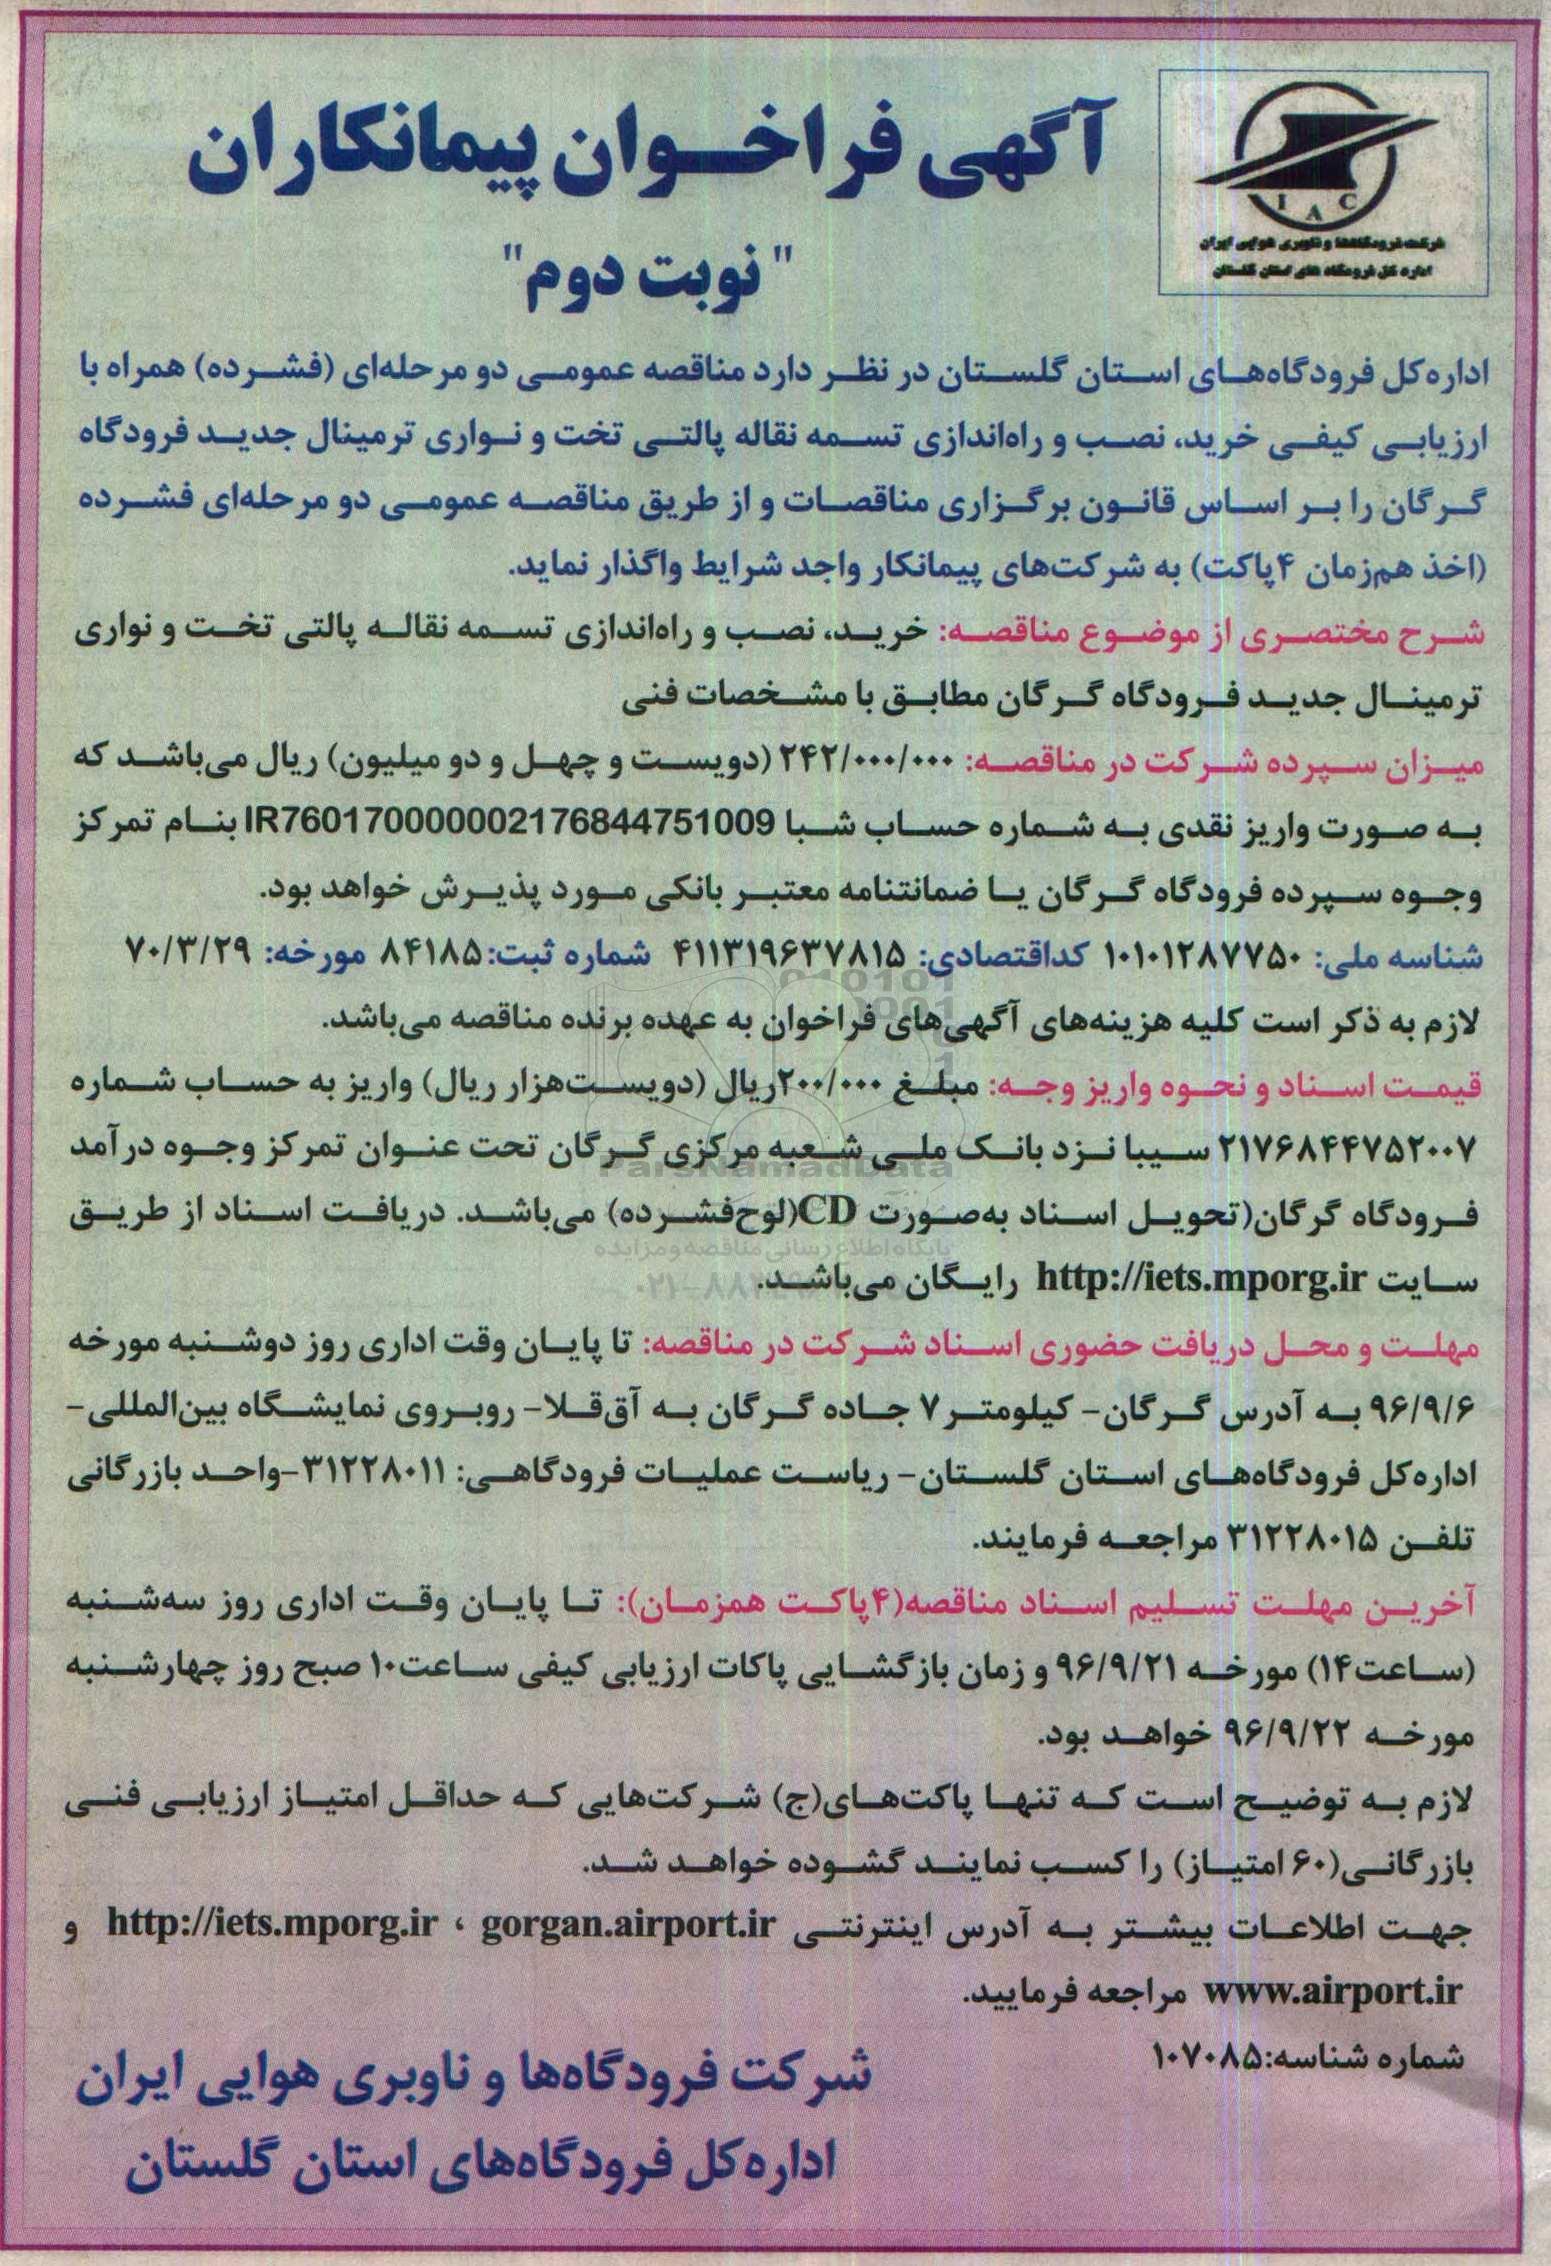 آگهی فراخوان پیمانکاران
"نوبت دوم"
IAC
شرکت فرودگاهها و ناوبری هوایی ایران
اداره کل فرودگاه های استان گلستان
اداره‌کل فرودگاه‌های استان گلستان در نظر دارد مناقصه عمومی دو مرحله‌ای (فشرده) همراه با
ارزیابی کیفی خرید، نصب و راه‌اندازی تسمه نقاله پالتی تخت و نواری ترمینال جدید فرودگاه
گرگان را بر اساس قانون برگزاری مناقصات و از طریق مناقصه عمومی دو مرحله‌ای فشرده
(اخذ همزمان ۴پاکت) به شرکت‌های پیمانکار واجد شرایط واگذار نماید.
شرح مختصری از موضوع مناقصه: خرید، نصب و راه‌اندازی تسمه نقاله پالتی تخت و نواری
ترمینال جدید فرودگاه گرگان مطابق با مشخصات فنی
میزان سپرده شرکت در مناقصه: ۲۴۲/۰۰۰/۰۰۰ (دویست و چهل و دو میلیون) ریال می‌باشد که
به صورت واریز نقدی به شماره حساب شبا IR760170000002176844751009 بنام تمرکز
وجوه سپرده فرودگاه گرگان یا ضمانتنامه معتبر بانکی مورد پذیرش خواهد بود.
شناسه ملی: ۱۰۱۰۱۲۸۷۷۵۰ کداقتصادی: ۴۱۱۳۱۹۶۳۷۸۱۵ شماره ثبت:۸۴۱۸۵ مورخه: ۷۰/۳/۲۹
لازم به ذکر است کلیه هزینه‌های آگهی‌های فراخوان به عهده برنده مناقصه می‌باشد.
قیمت اسناد و نحوه واریز وجه: مبلغ ۲۰۰/۰۰۰ریال (دویست‌هزار ریال) واریز به حساب شماره
۲۱۷۶۸۴۴۷۵۲۰۰۷ سیبا نزد بانک ملی شعبه مرکزی گرگان تحت عنوان تمرکز وجوه درآمد
فرودگاه گرگان(تحویل اسناد به‌صورت CD(لوح‌فشرده) می‌باشد. دریافت اسناد از طریق
سایت http://iets.mporg.ir رایگان می‌باشد.
ParsNamadData
پایگاه اطلاع رسانی مناقصه و مزایده
مهلت و محل دریافت حضوری اسناد شرکت در مناقصه: تا پایان وقت اداری روز دوشنبه مورخه
۹۶/۹/۶ به آدرس گرگان- کیلومتر۷ جاده گرگان به آق‌قلا- روبروی نمایشگاه بین‌المللی-
اداره‌کل فرودگاه‌های استان گلستان- ریاست عملیات فرودگاهی: ۳۱۲۲۸۰۱۱-واحد بازرگانی
تلفن ۳۱۲۲۸۰۱۵ مراجعه فرمایند.
آخرین مهلت تسلیم اسناد مناقصه(۴پاکت همزمان): تا پایان وقت اداری روز سه‌شنبه
(ساعت۱۴) مورخه ۹۶/۹/۲۱ و زمان بازگشایی پاکات ارزیابی کیفی ساعت۱۰ صبح روز چهارشنبه
مورخه ۹۶/۹/۲۲ خواهد بود.
لازم به توضیح است که تنها پاکت‌های(ج) شرکت‌هایی که حداقل امتیاز ارزیابی فنی
بازرگانی(۶۰ امتیاز) را کسب نمایند گشوده خواهد شد.
جهت اطلاعات بیشتر به آدرس اینترنتی http://iets.mporg.ir ، gorgan.airport.ir و
www.airport.ir مراجعه فرمایید.
شماره شناسه:۱۰۷۰۸۵
شرکت فرودگاه‌ها و ناوبری هوایی ایران
اداره‌کل فرودگاه‌های استان گلستان